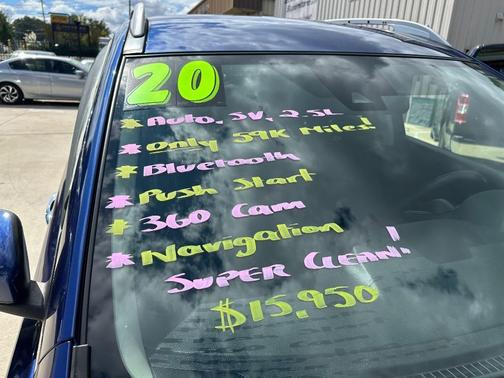 20
* Auto, SV, 2.5L
* Only 59K Miles!
* Bluetooth
* Push Start
* 360 Cam
* Navigation
Super Clean!
$15,950